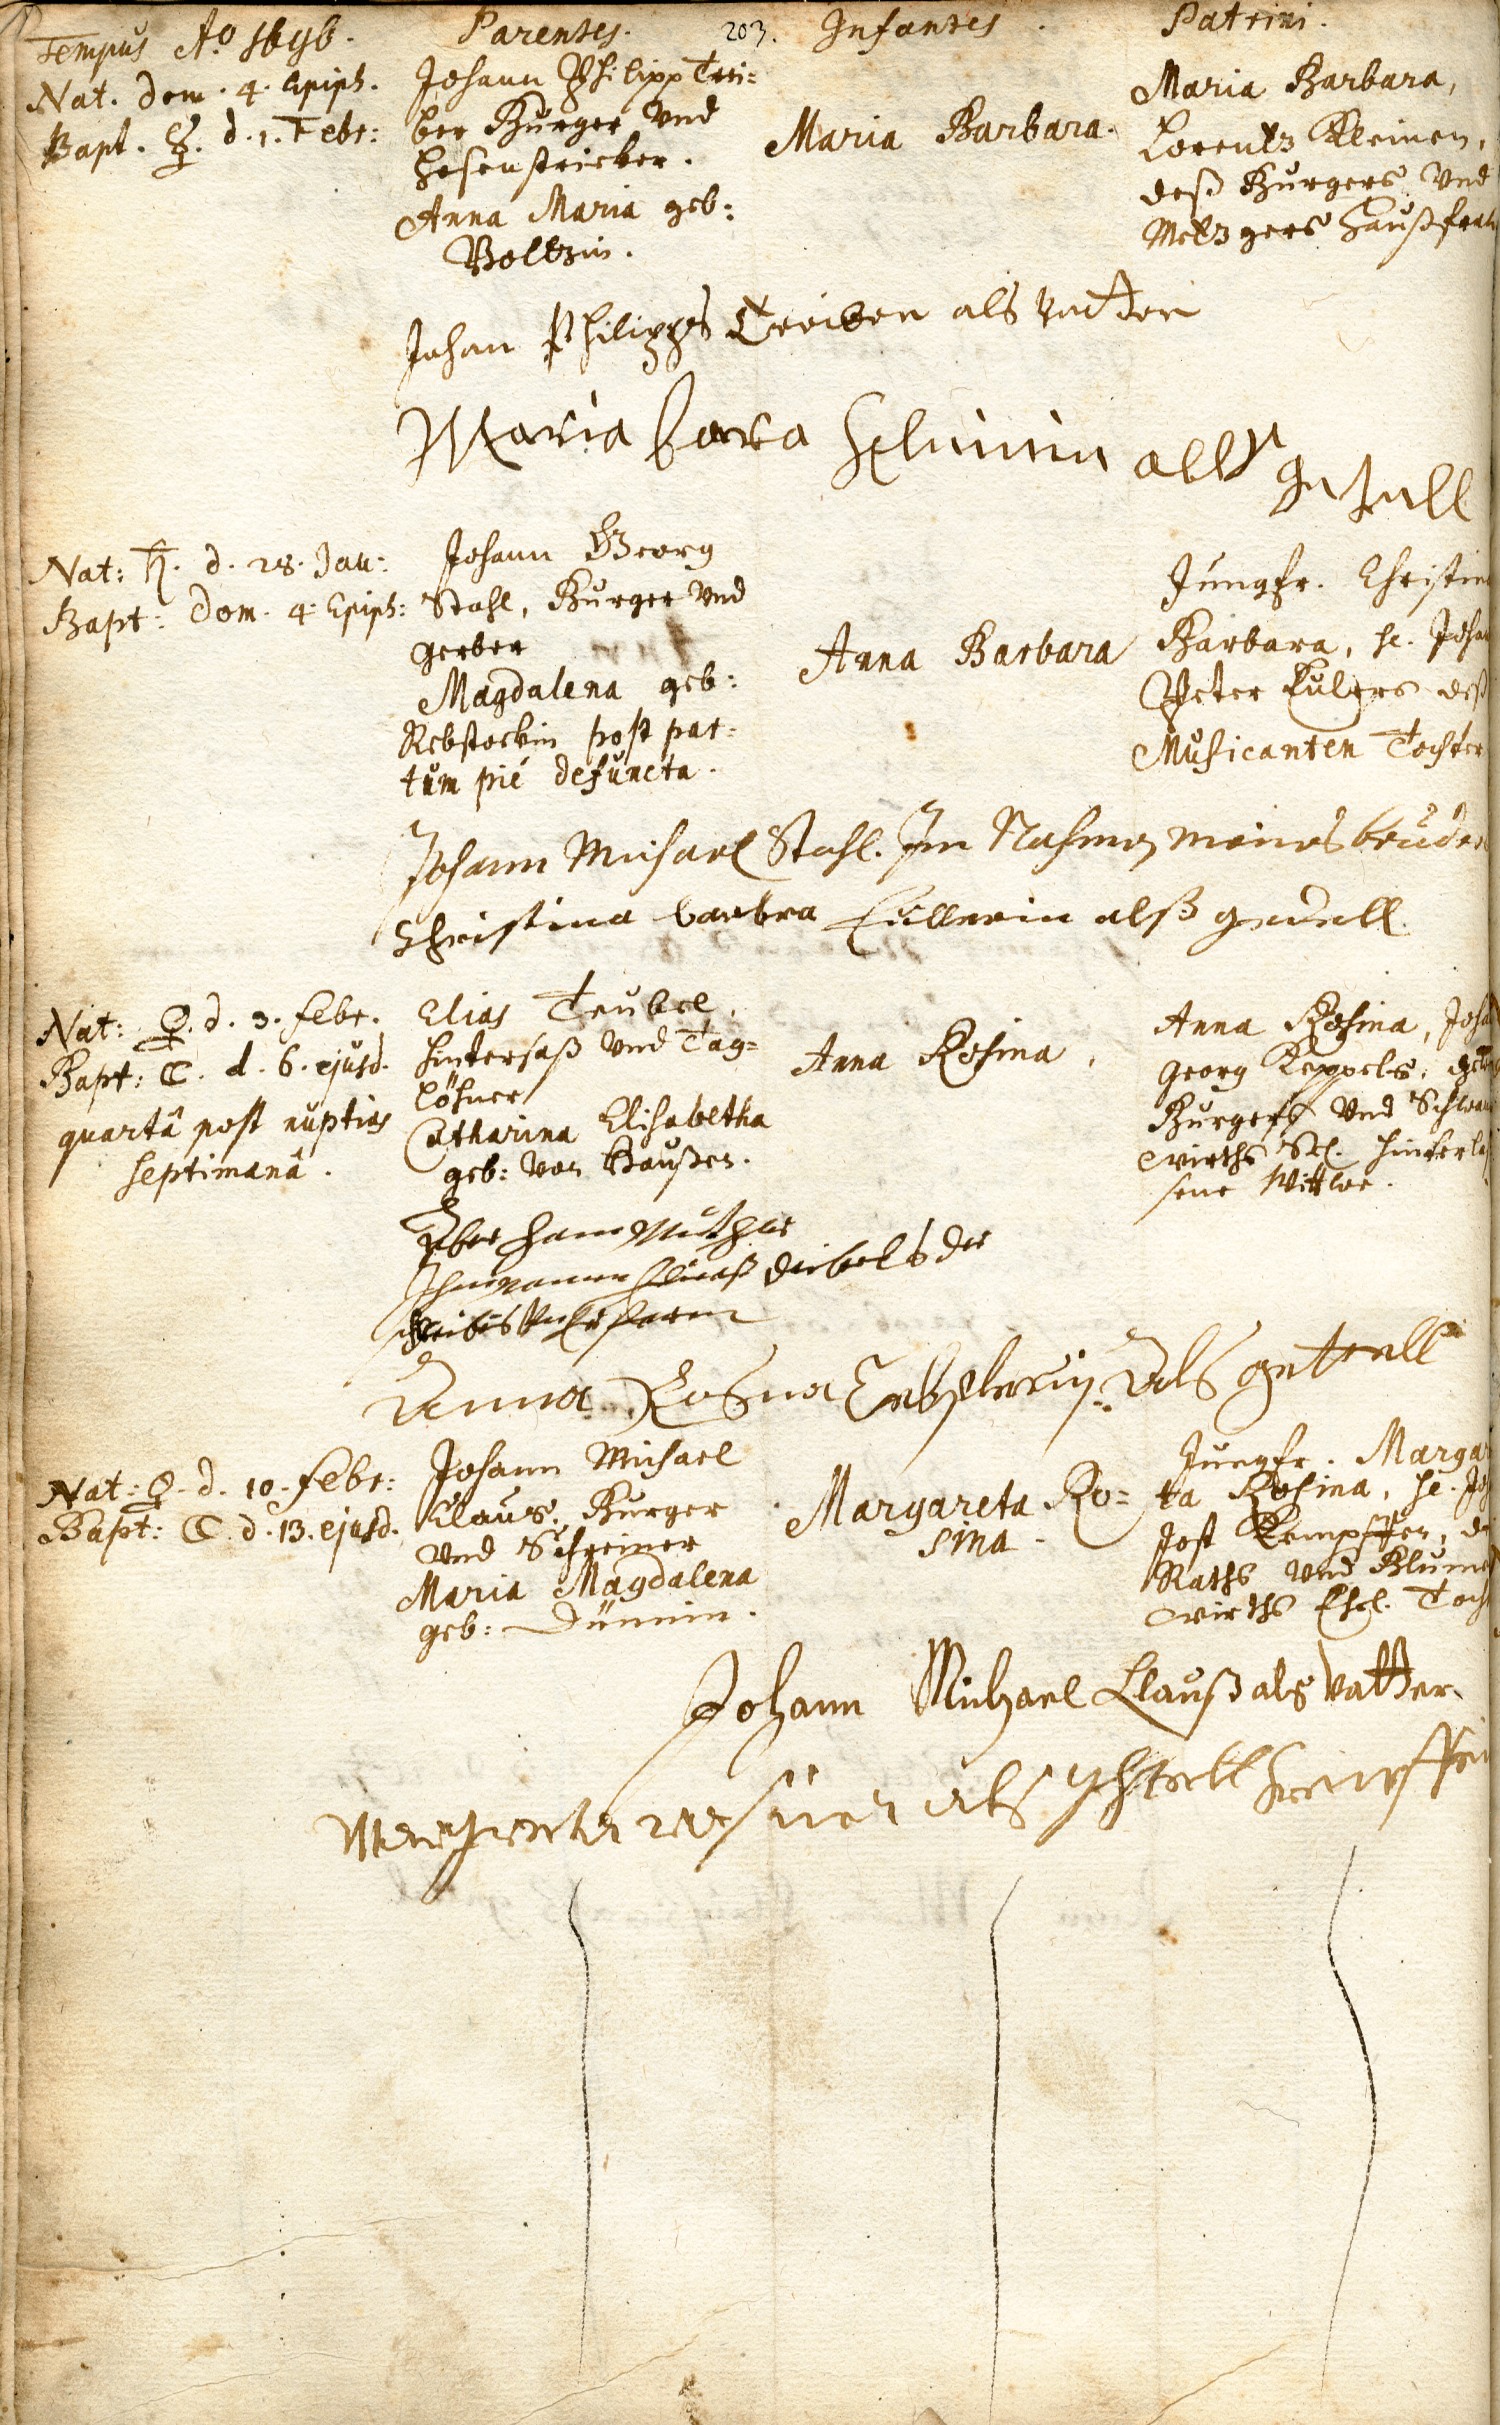 Tempus Ao 1696.
Parentes.
203.
Infantes.
Patrini.
Nat. dom. 4. Epiph.
Bapt. ☿. d. 1. Febr:
Johann Philipp Trei=
ber Burger Vnd
Hosenstricker.
Anna Maria geb:
Voltzin.
Maria Barbara.
Maria Barbara,
Lorentz Kleinen,
deß Burgers Vnd
Metzgers Haußfrau
Johan Philipps Treiber als Vatter
Maria barbra
Nat: ♄. d. 28. Jan:
Bapt: Dom. 4. Epiph:
Johann Georg
Stahl, Burger Vnd
gerber
Magdalena geb:
Rebstockin post par=
tum pié defuncta.
Anna Barbara
Jungfr. Christin
Barbara, H. Joha
Peter Eulers deß
Musicanten Tochter
Johann Michael Stahl. Im Nahmen meines bruder
Christina barbra Eullerin alß gedell.
Nat: ♀. d. 3. Febr.
Bapt: ☾. d. 6. ejusd.
quartâ post nuptias
septimanâ.
Elias Teubel,
Hintersaß Vnd Tag=
löhner
Catharina Elisabetha
geb: Von Haußen.
Anna Rosina,
Anna Rosina, Joha
Georg Keppels,
Burgers Vnd Schwan
wirths Sel. hinterlaß
sene Wittwe.
Anna Rosina als
Nat: ♀. d. 10. Febr:
Bapt: ☾. d. 13. ejusd.
Johann Michael
Claus, Burger
Vnd Schreiner
Maria Magdalena
geb: Dümin.
Margareta Ro=
sina.
Jungfr. Marga
ta Rosina, H. Joh
Jost Kempffen, d
Raths Vnd Blume
wirths Ehel. Toch
Johann Michael Clauß als Vatter.